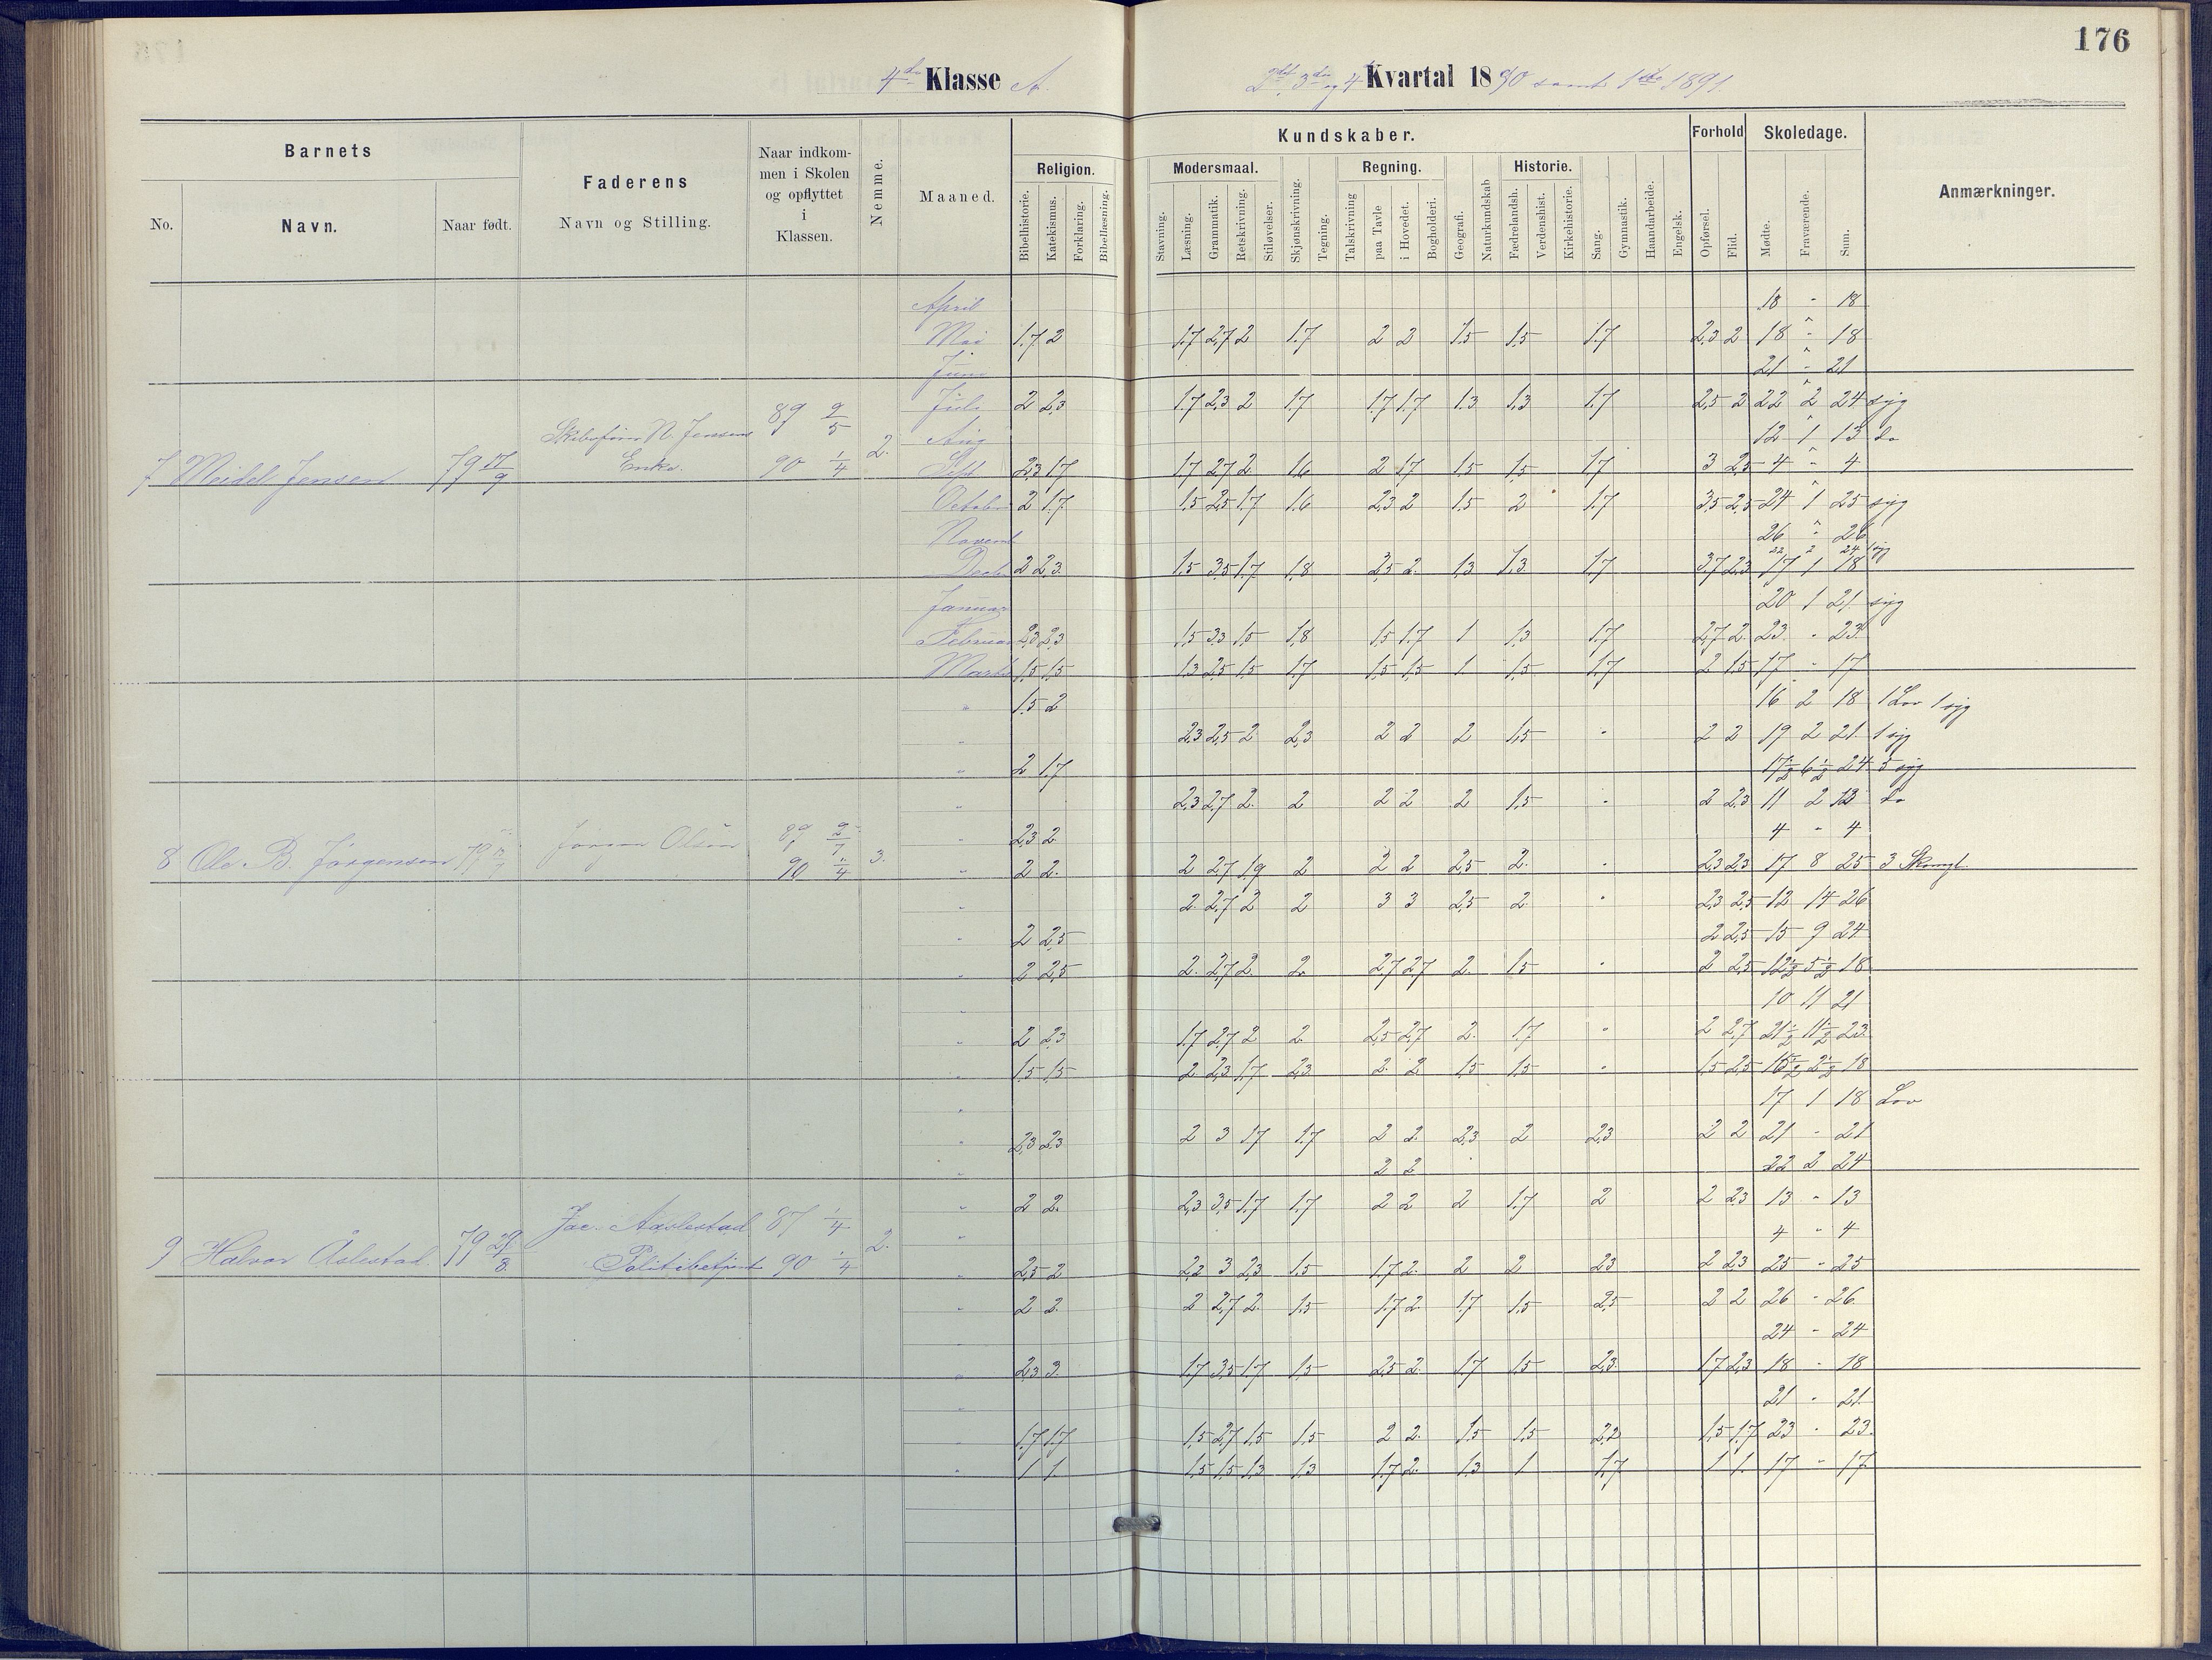 176
4de Klasse A.
2det, 3die og 4de Kvartal 1890 samt 1ste 1891
Barnets
No.
Navn.
Naar født.
Faderens
Navn og Stilling.
Naar indkom-
men i Skolen
og opflyttet
i
Klassen.
Nemme.
Maaned.
Kundskaber.
Religion.
Bibelhistorie.
Katekismus.
Forklaring.
Bibellæsning.
Modersmaal.
Stavning.
Læsning.
Grammatik.
Retskrivning.
Stiløvelser.
Skjønskrivning.
Tegning.
Regning.
Talskrivning
paa Tavle
i Hovedet.
Bogholderi.
Geografi.
Naturkundskab
Historie.
Fædrelandsh.
Verdenshist.
Kirkehistorie.
Sang.
Gymnastik.
Haandarbeide.
Engelsk.
Forhold
Opførsel.
Flid.
Skoledage.
Mødte.
Fraværende.
Sum.
Anmærkninger.
April 18 - 18
Mai 1.7 2 1.7 2,7 2 1.7 2 2 1,5 1,5 1.7 2,3 2 18 - 18
Juni 21 - 21
Juli 2 2,3 1.7 2,3 2 1.7 1.7 1.7 1.3 1,3 1.7 2,5 2 22 2 24 syg
Aug 12 1 13 do
7 Meidel Jensen 79 17/9 Skibsfører N. Jensens Enke. 89 2/5 90 1/4 2.
Sept. 2,3 1.7 1.7 2,7 2 1.6 2 1.7 1.5 1.5 1.7 3 2,5 4 - 4
October 2 1.7 1.5 2,5 1.7 1.6 2,3 2 1.5 2 1.7 3,5 2,5 24 1 25 syg
Novemb 26 - 26
22 2 24 syg
Decbr 2 2,3 1.5 3,5 1.7 1,8 2,5 2 1,3 1,3 1.7 3,7 2,3 17 1 18
Januar 20 1 21 syg
Februar 2,3 2,3 1.5 3,3 1.5 1,8 1.5 1.7 1 1,3 1.7 2,7 2 23 - 23
Marts 1,5 1,5 1,3 2,5 1,5 1.7 1,5 1,5 1 1,5 1.7 2 1.5 17 - 17
1.5 2 16 2 18 1 Lov 1 syg
2,3 2,5 2 2,3 2 2 2 1,5 - 2 2 19 2 21 1 syg
2 1.7 17½ 6½ 24 5 syg
2,3 2,7 2 2 2 2 2 1.5 - 2 2,3 11 2 13 do
2,3 2 4 - 4
8 Ole B. Jørgensen 79 Jørgen Olsen 90 1/4 3.
2 2 2 2,7 1,9 2 2 2 2,5 2 - 2,3 2,3 17 8 25 3 Skoragl
2 2,7 2 2 3 3 2,5 2 - 2,3 2,5 12 14 26
2 2,5 2 2,5 15 9 24
2 2,5 2 2,7 2 2 2,7 2,7 2 1.5 - 2 2,5 12½ 5½ 18
10 11 21
2 2,3 1.7 2,7 2 2 2,5 2,7 2 1.7 - 2 2,7 21½ 1½ 23
1.5 1.5 2 2,3 1.7 2,3 2 2 1,5 1,5 - 1.5 2,5 15½ 2½ 18
17 1 18 Lov
2,3 2,3 2 3 1.7 1.7 2 2 2,3 2 2,3 2 2 21 - 21
2 2 22 2 24
2 2 2,3 3,5 1.7 1.7 2 2 2 1.7 2 2 2,3 13 - 13
4 - 4
9 Halvor Åslestad. 79 29/8 Jac. Aaslestad Politibetjent 87 1/4 90 1/4 2.
2,5 2 2,2 3 2,3 1.5 1.7 2 2 2 2,3 2 2,3 25 - 25
2 2 2 2,7 2 1,5 1.7 2 1.7 1.5 2,5 2 2 26 - 26
24 - 24
2,3 3 1.7 3,5 1.7 1.5 2,5 2 1.7 1.5 2,3 1.7 2,3 18 - 18
21 - 21
1.7 1.7 1,5 2,7 1,5 1,5 2 2 1,5 1,5 2,2 1,5 1.7 23 - 23
1 1 1,5 1,5 1,3 1,3 1.7 2 1,3 1 1.7 1 1 17 - 17